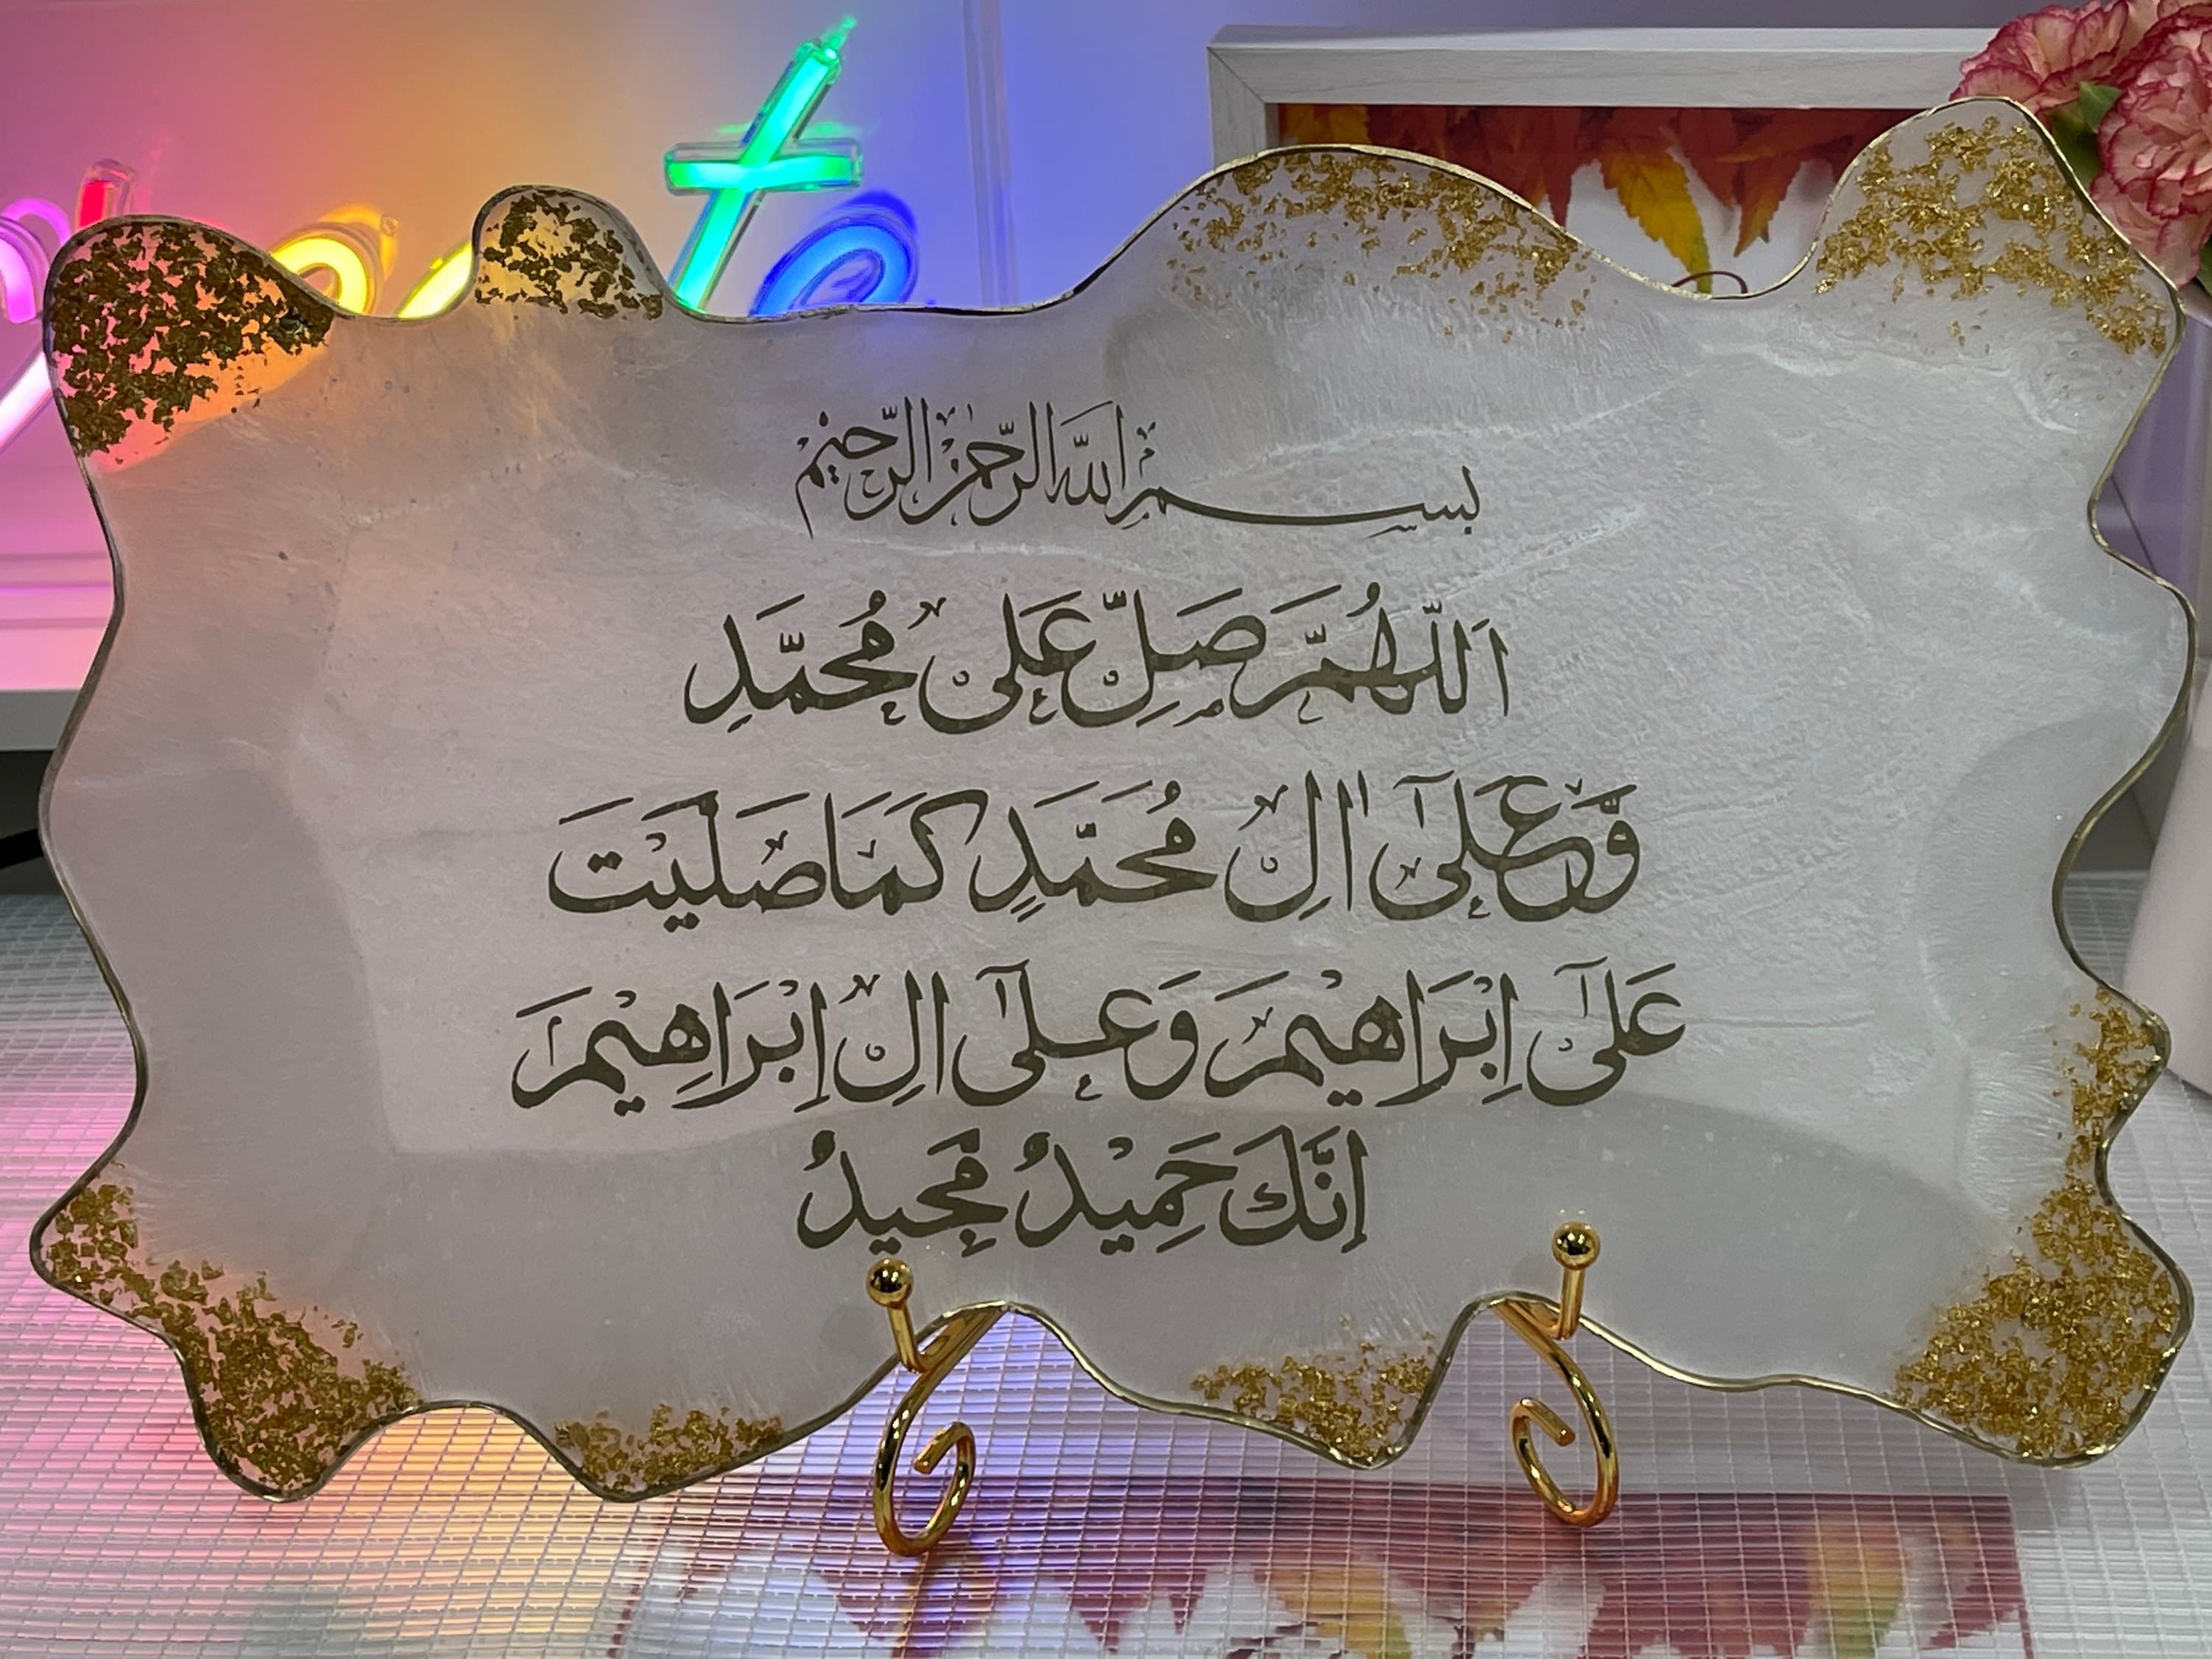 بسم الله الرحمن الرحيم
اَللّٰهُمَّ صَلِّ عَلٰى مُحَمَّدٍ
وَّعَلٰٓى اٰلِ مُحَمَّدٍ كَمَا صَلَّيْتَ
عَلٰٓى اِبْرَاهِيْمَ وَعَلٰٓى اٰلِ اِبْرَاهِيْمَ
اِنَّكَ حَمِيْدٌ مَّجِيدٌ